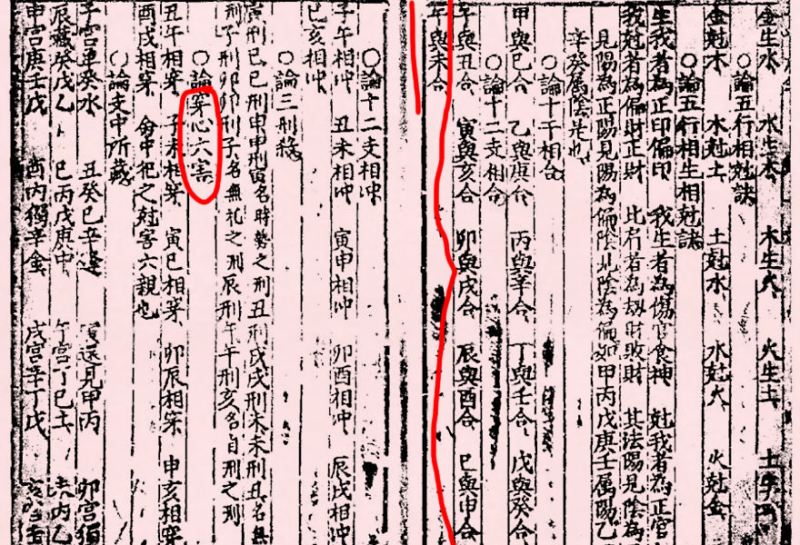 金生水 水生木 木生火 火生土 土
○論五行相尅訣
金尅木 木尅土 土尅水 水尅火 火尅金
○論五行相生相尅諸
生我者為正印偏印 我生者為傷官食神 尅我者為正官
我尅者為偏財正財 比者為劫財敗財 其法陽見陰為
見陽為正陽見陽為偏陰見陰為偏如甲丙戊庚壬属陽乙
辛癸属陰是也
○論十干相合
甲與己合 乙與庚合 丙與辛合 丁與壬合 戊與癸合
○論十二支相合
子與丑合 寅與亥合 卯與戌合 辰與酉合 巳與申合
午與未合
○論十二支相冲
子午相冲 丑未相冲 寅申相冲 卯酉相冲 辰戌相冲
巳亥相冲
○論三刑
寅刑巳巳刑申申刑寅名時勢之刑丑刑戌戌刑未未刑丑名無
刑子刑卯卯刑子名無礼之刑辰刑午午刑亥名自刑之刑
○論穿心六害
丑午相穿 子未相穿 寅巳相穿 卯辰相穿 申亥相穿
酉戌相穿 命中犯之尅害六親也
○論支中所藏
子宮單癸水 丑癸巳辛逢 寅還見甲丙 卯宮獨
辰藏癸戊乙 巳丙戊庚中 午宮丁己土 丙乙
申宮庚壬戊 酉内獨辛金 戌宮辛丁戊 亥